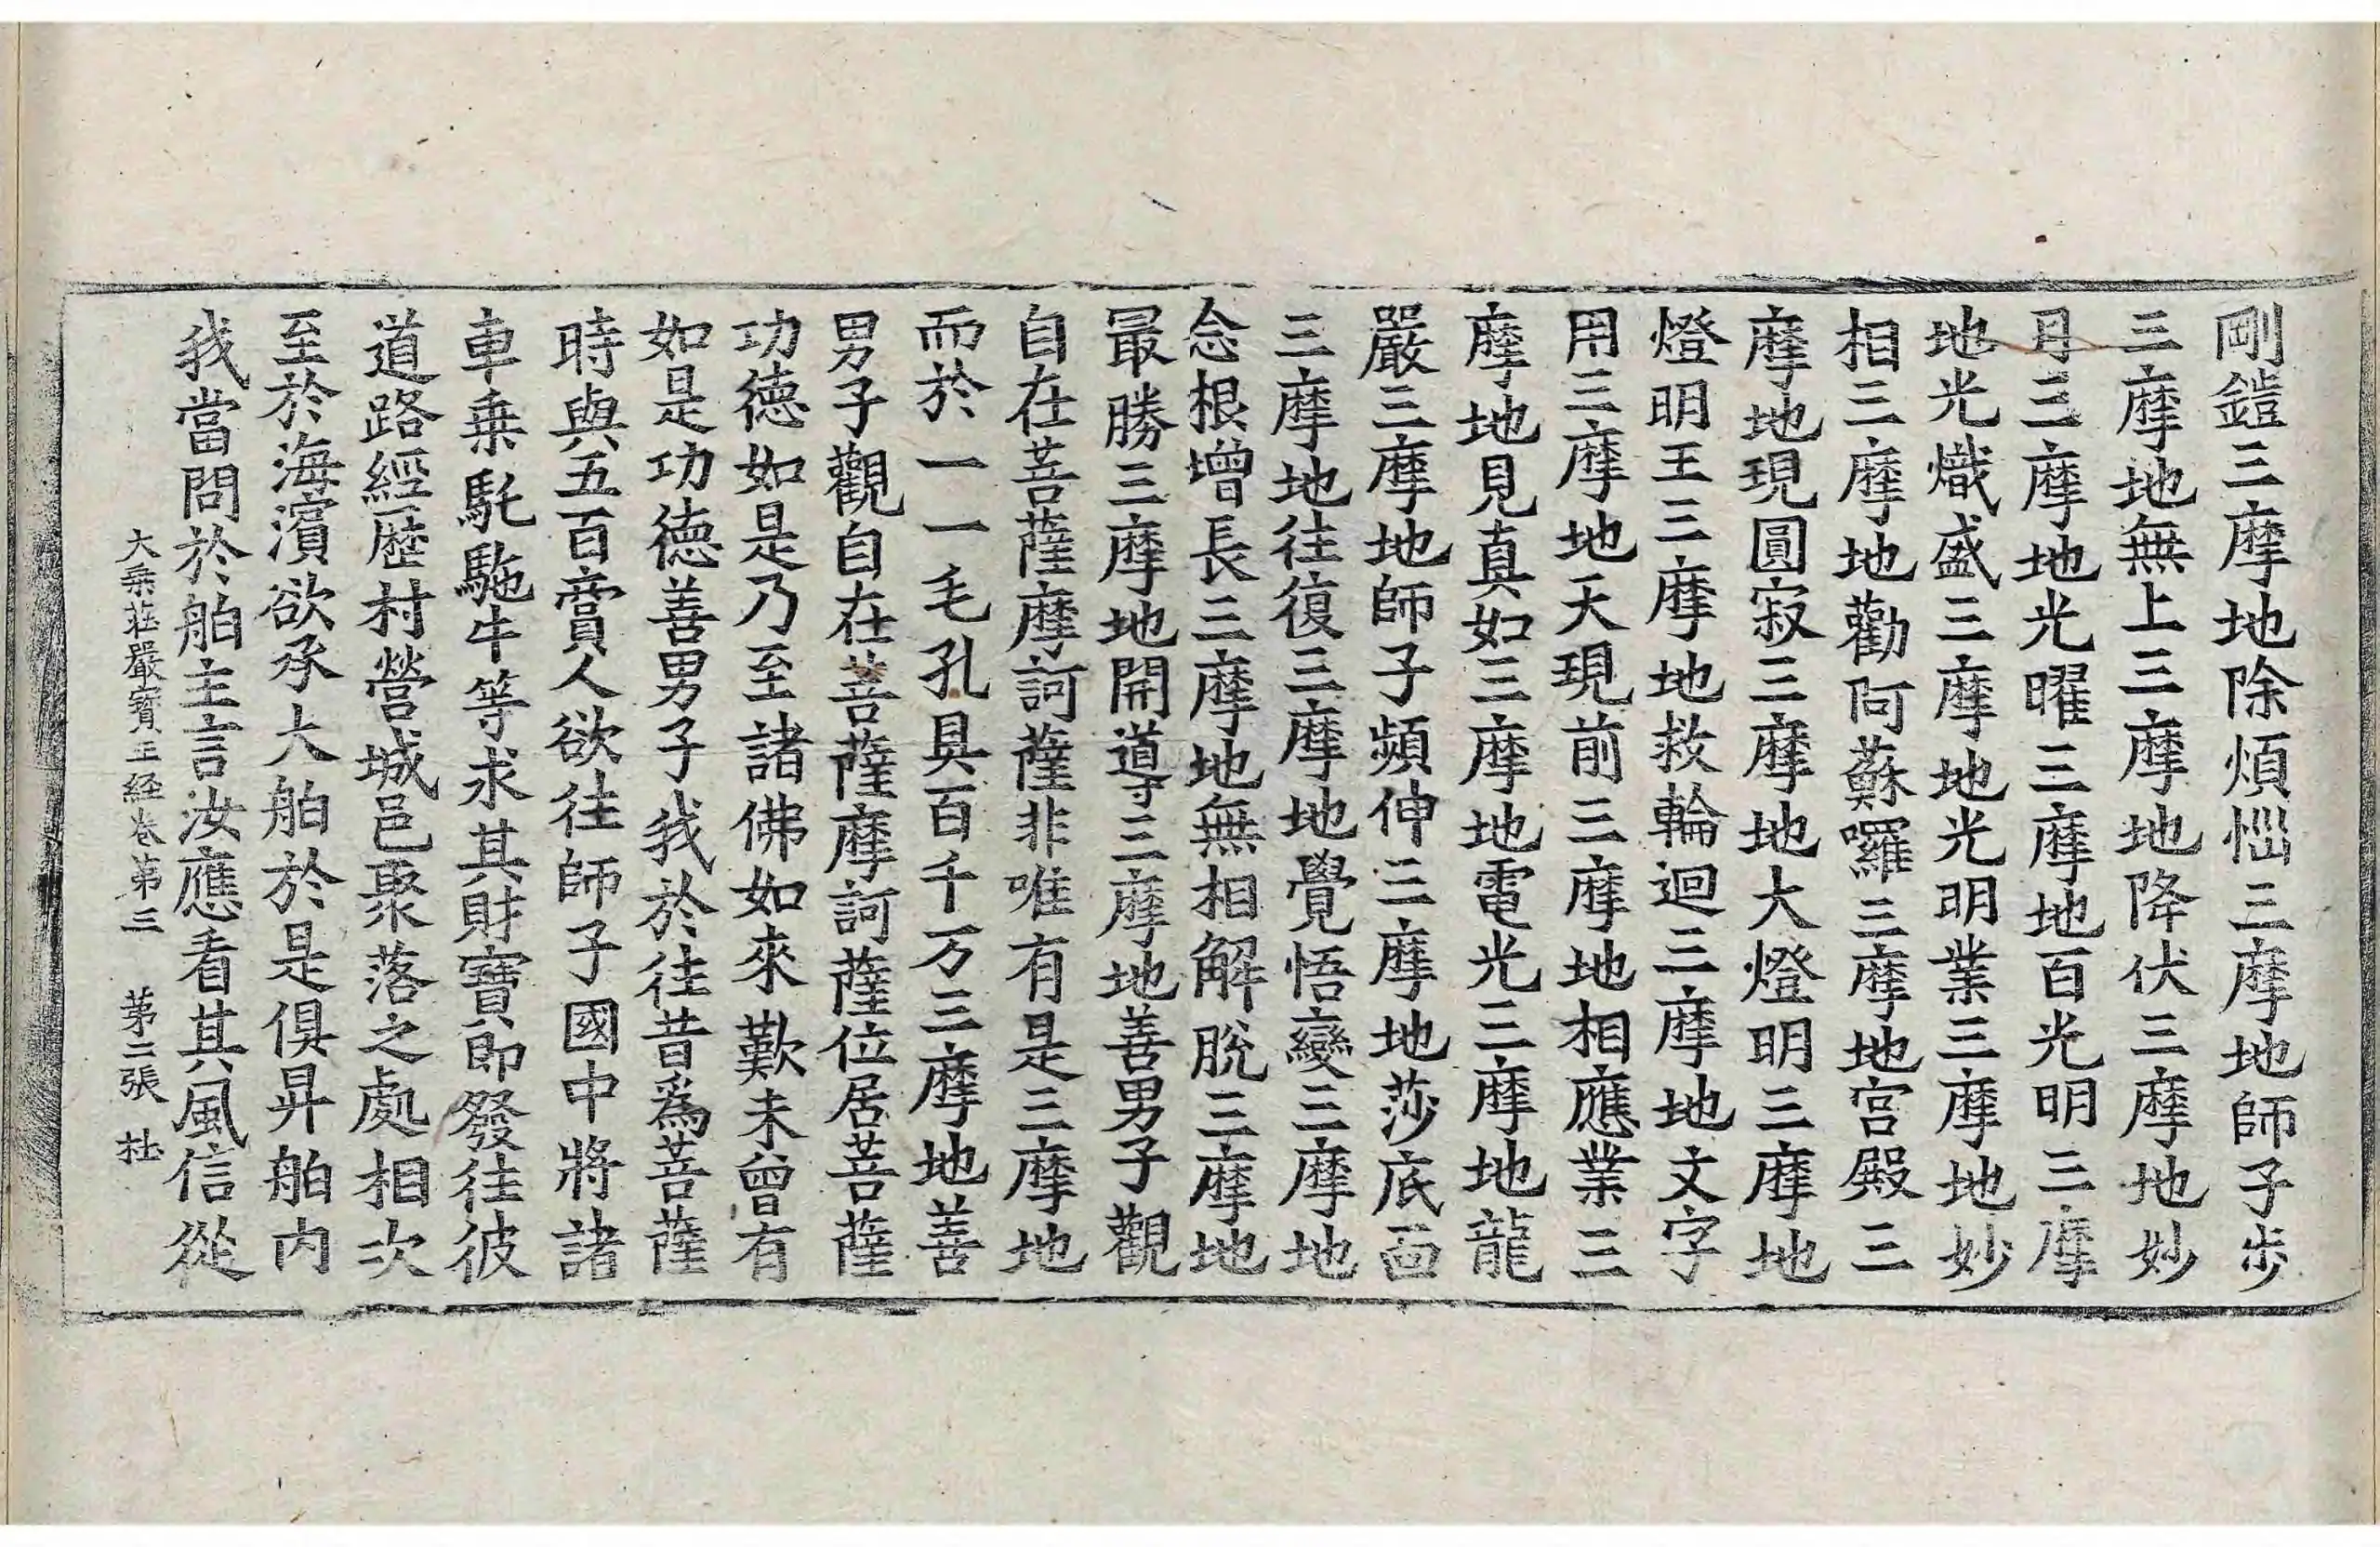 剛鎧三摩地除煩惱三摩地師子步
三摩地無上三摩地降伏三摩地妙
月三摩地光曜三摩地百光明三摩
地光熾盛三摩地光明業三摩地妙
相三摩地勸阿蘇囉三摩地宮殿三
摩地現圓寂三摩地大燈明三摩地
燈明王三摩地救輪迴三摩地文字
用三摩地天現前三摩地相應業三
摩地見真如三摩地電光三摩地龍
嚴三摩地師子頻伸三摩地莎底面
三摩地往復三摩地覺悟變三摩地
念根增長三摩地無相解脫三摩地
最勝三摩地開導三摩地善男子觀
自在菩薩摩訶薩非唯有是三摩地
而於一一毛孔具百千万三摩地善
男子觀自在菩薩摩訶薩位居菩薩
功德如是乃至諸佛如來歎未曾有
如是功德善男子我於往昔為菩薩
時與五百賣人欲往師子國中將諸
車乘馲駞牛等求其財寶即發往彼
道路經歷村營城邑聚落之處相次
至於海濱欲承大舶於是俱昇舶內
我當問於舶主言汝應看其風信從
大乘莊嚴寶王經卷第三 第二張 杜